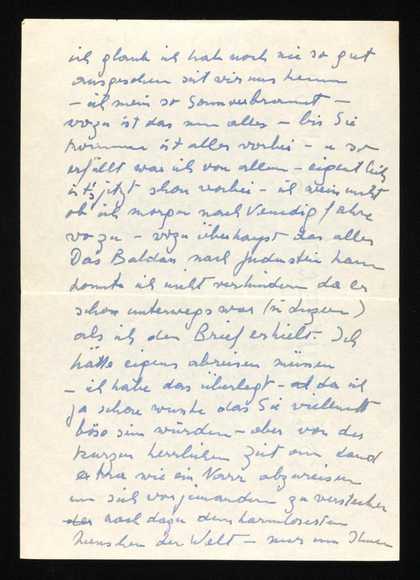 ich glaub ich hab noch nie so gut
ausgesehen seit wir uns kennen
– ich mein so Sonnverbrannt –
wozu ist das nun alles – bis Sie
kommen ist alles vorbei – u so
erfüllt war ich von allem – eigentlich
ist's jetzt schon vorbei – ich weiss nicht
ob ich morgen nach Venedig fahre
wozu – wozu überhaupt das alles
Das Baldas nach kam
konnte ich nicht verhindern da er
schon unterwegs war (in Luzern)
als ich den Brief erhielt. Ich
hätte eigens abreisen müssen
– ich habe das überlegt – da ich
ja schon wusste das Sie vielleicht
böse sein würden – aber von der
kurzen herrlichen Zeit am Land
extra wie ein Narr abzureisen
um sich vor jemandem zu verstecken
noch dazu dem harmlosesten
Menschen der Welt – nur um Ihnen